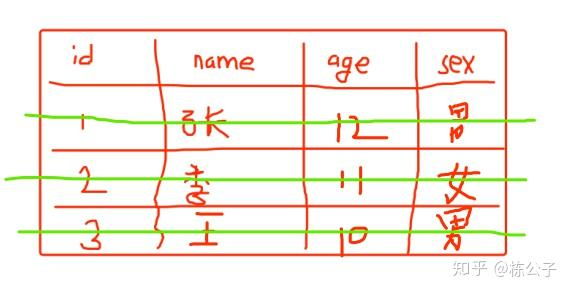 id name age sex
1 张 12 男
2 李 11 女
3 王 10 男
知乎 @栋公子